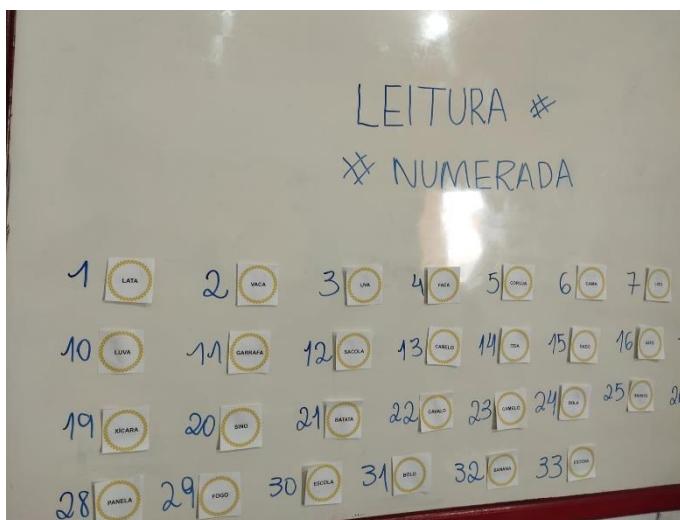 LEITURA #
# NUMERADA
1 LATA 2 VACA 3 UVA 4 FACA 5 CORUJA 6 CAMA 7
10 LUVA 11 GARRAFA 12 SACOLA 13 CABELO 14 15 DADO 16
19 XÍCARA 20 SINO 21 BATATA 22 CAVALO 23 CAMELO 24 BOLA 25
28 PANELA 29 FOGO 30 ESCOLA 31 BOLO 32 BANANA 33